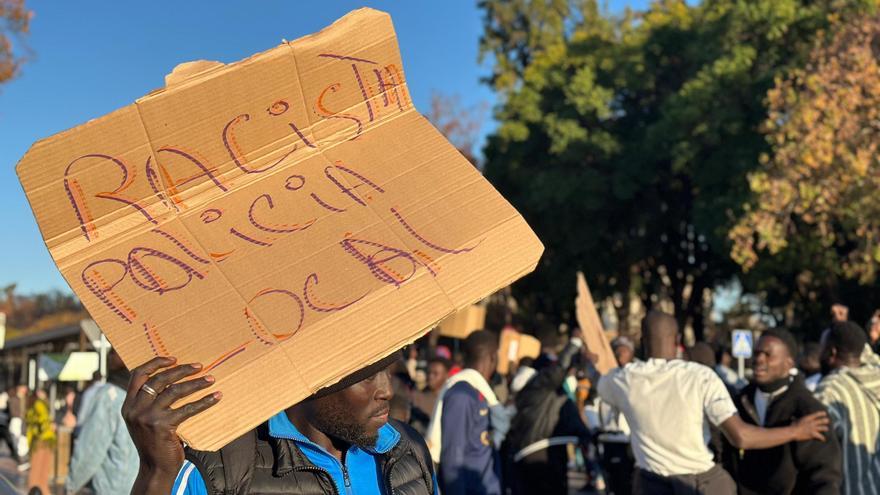 RACISTA
POLICIA
LOCAL